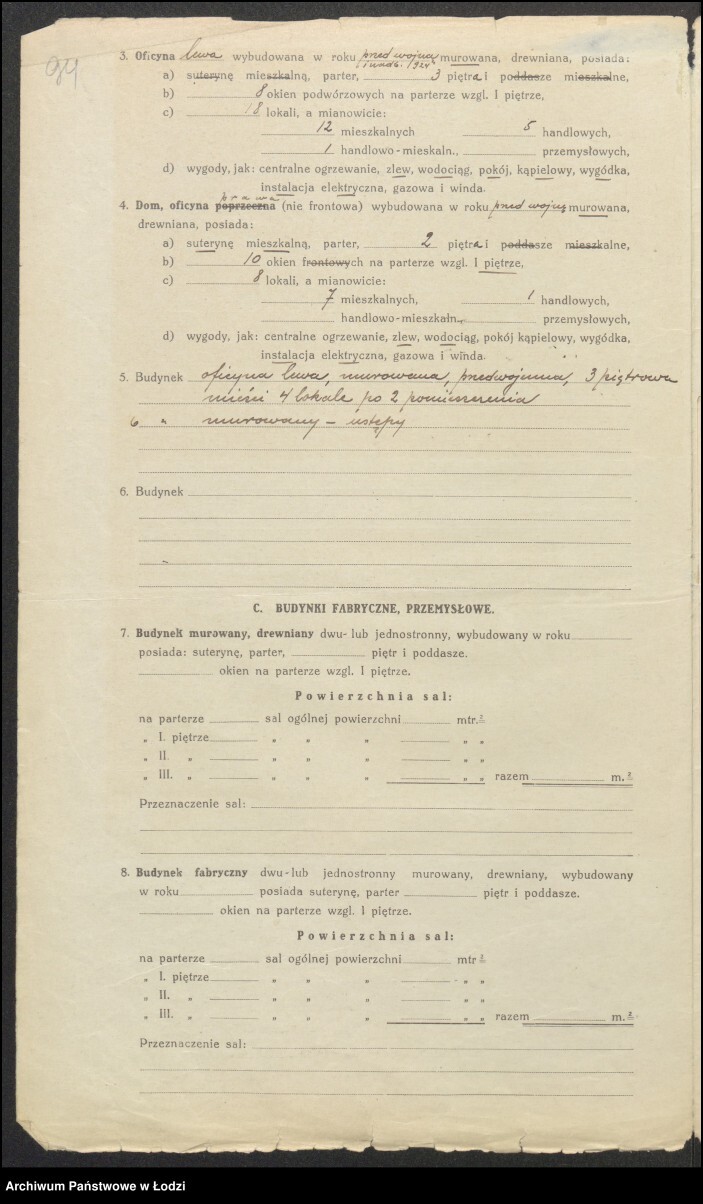 94
3. Oficyna lewa wybudowana w roku przed wojną murowana, drewniana, posiada:
i nadb. 1924
a) suterynę mieszkalną, parter, 3 piętra i poddasze mieszkalne,
b) 8 okien podwórzowych na parterze wzgl. I piętrze,
c) 18 lokali, a mianowicie:
12 mieszkalnych 5 handlowych,
1 handlowo-mieskaln., przemysłowych,
d) wygody, jak: centralne ogrzewanie, zlew, wodociąg, pokój, kąpielowy, wygódka,
instalacja elektryczna, gazowa i winda.
prawa
4. Dom, oficyna poprzeczna (nie frontowa) wybudowana w roku przed wojną murowana,
drewniana, posiada:
a) suterynę mieszkalną, parter, 2 piętra i poddasze mieszkalne,
b) 10 okien frontowych na parterze wzgl. I piętrze,
c) 8 lokali, a mianowicie:
7 mieszkalnych, 1 handlowych,
handlowo-mieszkaln., przemysłowych,
d) wygody, jak: centralne ogrzewanie, zlew, wodociąg, pokój kąpielowy, wygódka,
instalacja elektryczna, gazowa i winda.
5. Budynek oficyna lewa, murowana, przedwojenna, 3 piętrowa
mieści 4 lokale po 2 pomieszczenia
6 " murowany - ustępy
6. Budynek
C. BUDYNKI FABRYCZNE, PRZEMYSŁOWE.
7. Budynek murowany, drewniany dwu- lub jednostronny, wybudowany w roku
posiada: suterynę, parter, piętr i poddasze.
okien na parterze wzgl. I piętrze.
Powierzchnia sal:
na parterze sal ogólnej powierzchni mtr.²
„ I. piętrze „ „ „ „ „
„ II. „ „ „ „ „ „
„ III. „ „ „ „ „ „ razem m.²
Przeznaczenie sal:
8. Budynek fabryczny dwu-lub jednostronny murowany, drewniany, wybudowany
w roku posiada suterynę, parter piętr i poddasze.
okien na parterze wzgl. I piętrze.
Powierzchnia sal:
na parterze sal ogólnej powierzchni mtr²
„ I. piętrze „ „ „ „ „
„ II. „ „ „ „ „ „
„ III. „ „ „ „ „ „ razem m.²
Przeznaczenie sal:
Archiwum Państwowe w Łodzi